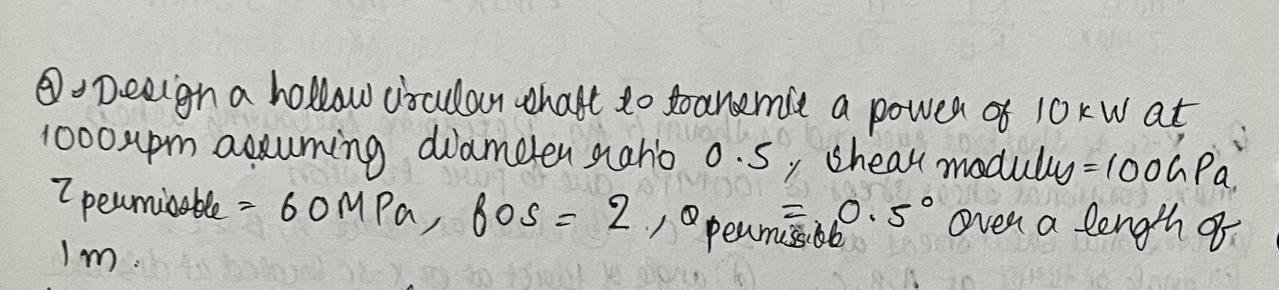 Q→ Design a hollow circular shaft to transmit a power of 10kW at
1000rpm assuming diameter ratio 0.5, shear modulus = 100GPa,
τ permissable = 60MPa, fos = 2, θ permissible = 0.5° over a length of
1m.